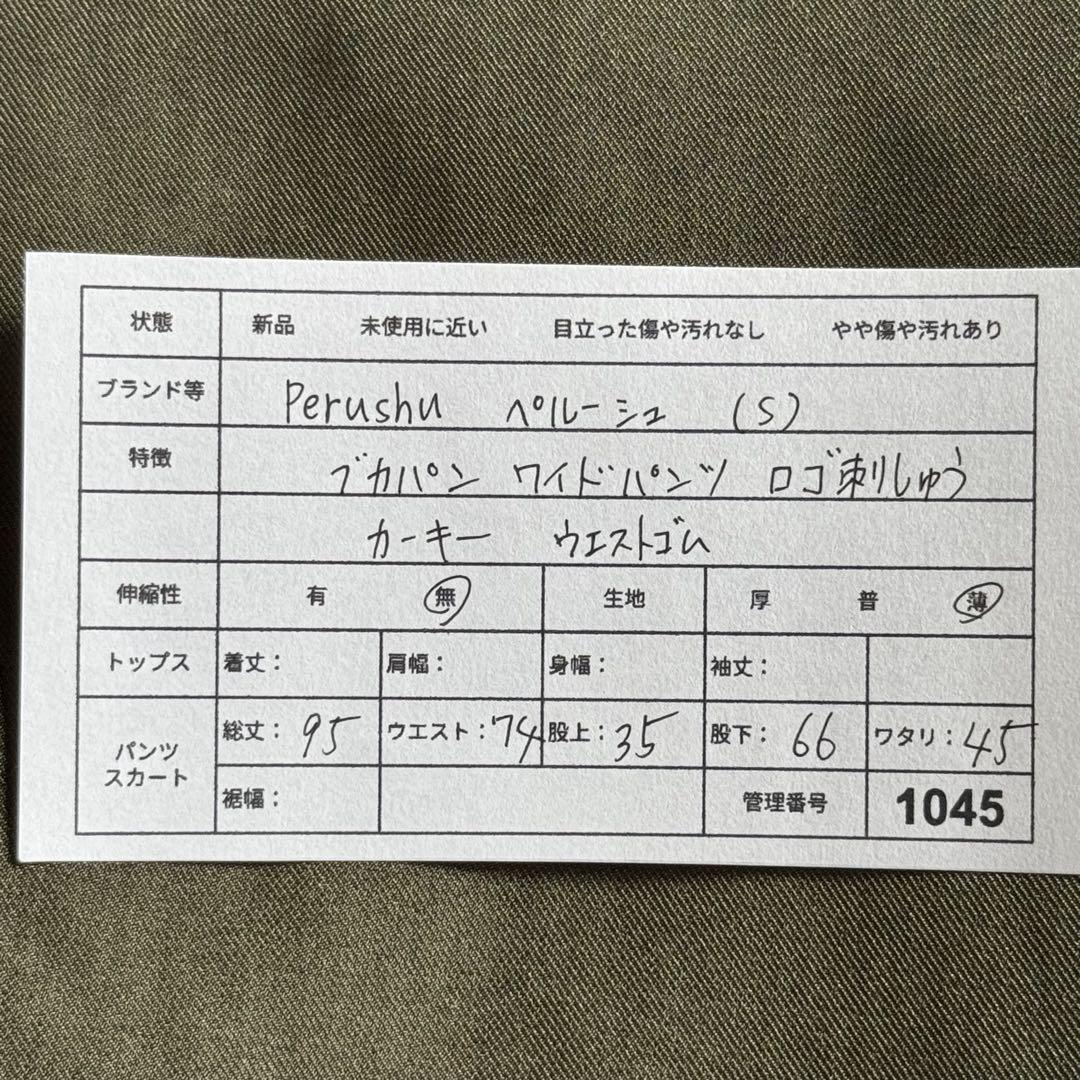 状態 新品 未使用に近い 目立った傷や汚れなし やや傷や汚れあり
ブランド等 Perushu ペルーシュ (S)
特徴 ブカパン ワイドパンツ ロゴ刺しゅう
カーキー ウエストゴム
伸縮性 有 無 生地 厚 普 薄
トップス 着丈： 肩幅： 身幅： 袖丈：
パンツ スカート 総丈：95 ウエスト：74 股上：35 股下：66 ワタリ：45
裾幅： 管理番号 1045